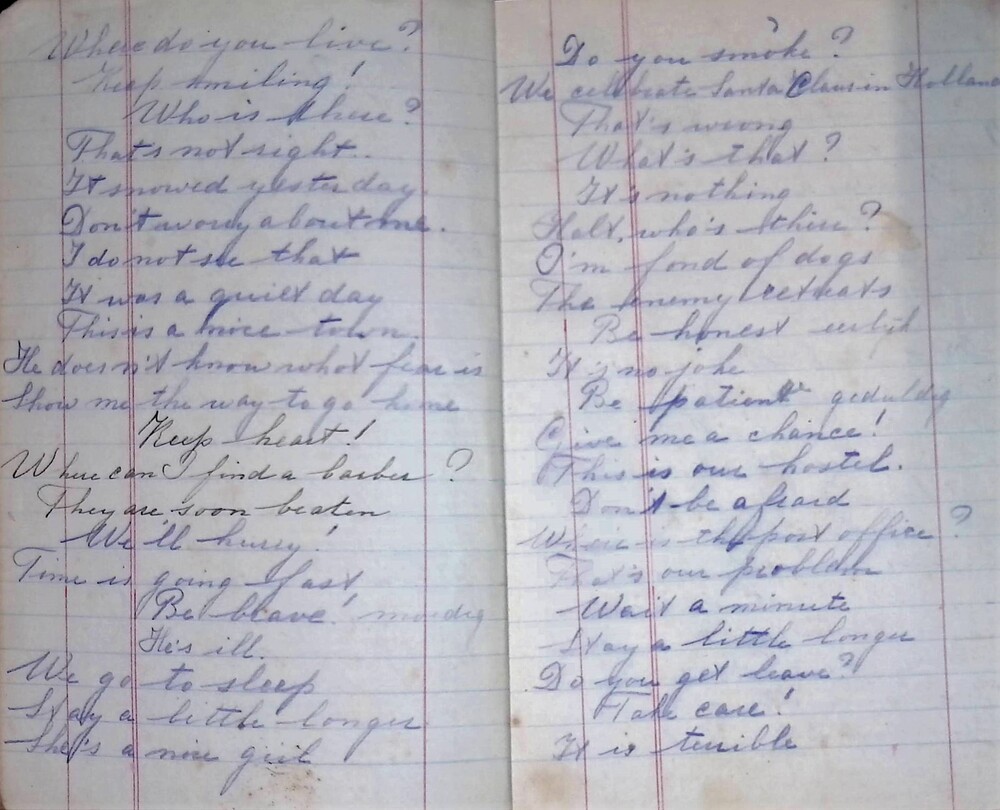 Where do you live?
Keep smiling!
Who is there?
That's not right..
It snowed yesterday.
Don't worry about me.
I do not see that
It was a quiet day
This is a nice town.
He doesn't know what fear is
Show me the way to go home
Keep heart!
Where can I find a barber?
They are soon beaten
We'll hurry!
Time is going fast,
Be brave! moedig
He's ill.
We go to sleep
Stay a little longer
She's a nice girl
Do you smoke?
We celebrate Santa Claus in Holland
That's wrong
What's that?
It's nothing
Halt, who's there?
I'm fond of dogs
The enemy retreats
Be honest eerlijk
It's no joke
Be patient geduldig
Give me a chance!
This is our hostel.
Don't be afraid
Where is the post office?
That's our problem
Wait a minute
Stay a little longer
Do you get leave?
Take care!
It is terrible